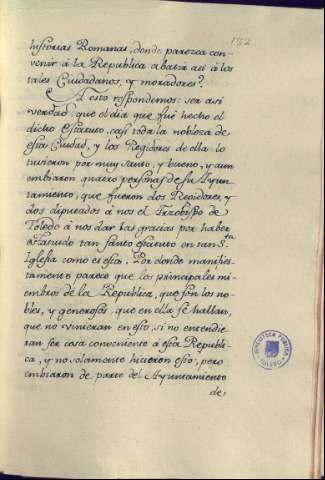 132
historias Romanas, donde parezca con-
venir à la Republica abatir asi à los
tales Ciudadanos, y moradores?.
A esto respondemos: ser asi
verdad, que el dia que fué hecho el
dicho estatuto, casi toda la nobleza de
esta Ciudad, y los Regidores de ella lo
tuvieron por muy santo, y bueno, y aun
embiaron quatro personas de su Ayun-
tamiento, que fueron dos Regidores, y
dos diputados à nos el Arzobispo de
Toledo à nos dar las gracias por haber
estatuido tan santo estatuto en tan Sta.
Iglesia como es esta. Por donde manifies-
tamente parece que los principales mi-
embros de la Republica, que son los no-
bles, y generosos, que en ella se hallan,
que no vinieran en esto, si no entendie-
ran ser cosa conveniente à esta Republi-
ca, y no solamente hicieron esto; pero
embiaron de parte del Ayuntamiento
de
BIBLIOTECA PUBLICA
TOLEDO